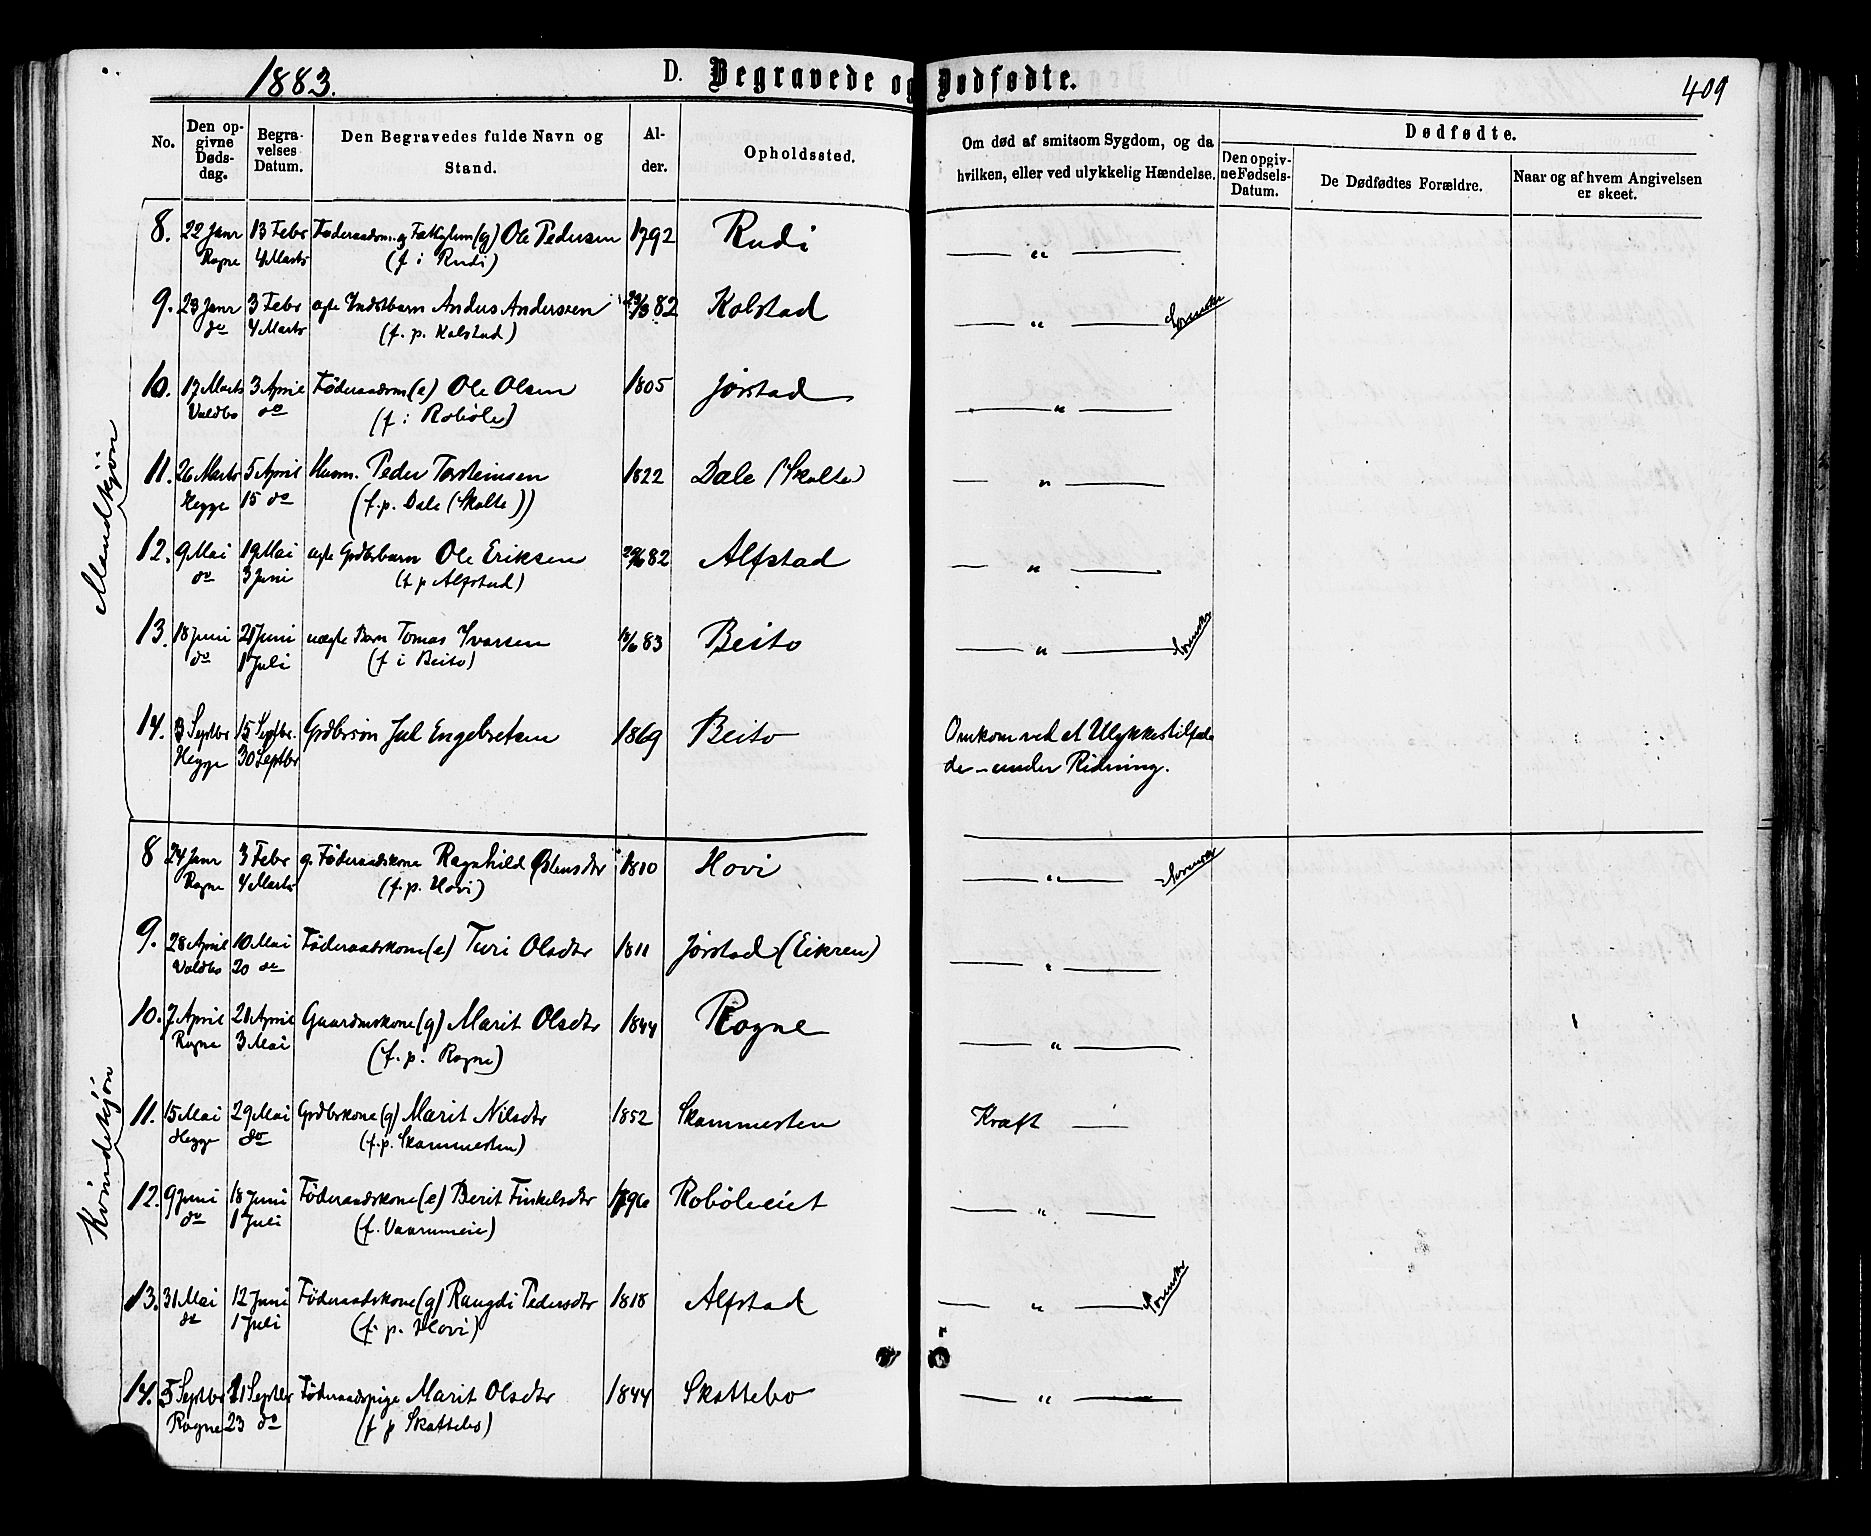 1883.
D. Begravede og Dødfødte.
409
No.
Den opgivne Dødsdag.
Begravelses Datum.
Den Begravedes fulde Navn og Stand.
Alder.
Opholdssted.
Om død af smitsom Sygdom, og da hvilken, eller ved ulykkelig Hændelse.
Dødfødte.
Den opgivne Fødsels-Datum.
De Dødfødtes Forældre.
Naar og af hvem Angivelsen er skeet.
Mandkjøn
8. 22 Janr 13 Febr Føderaadsm. og (g) Ole Pedersen 1792 Rudi — " —
Rogne 4 Marts (f i Rudi)
9. 23 Janr 3 Febr ægte Indstbarn Anders Andersen 82 Kolstad — " —
do 4 Marts (f. p. Kolstad)
10. 17 Marts 3 April Føderaadsm (e) Ole Olsen 1805 Jørstad — " —
Voldbo do (f i Robøle)
11. 26 Marts 5 April Husm. Peder Torsteinsen 1822 Dale (Skolte) — " —
Hegge 15 do (f. p. Dale (Skolte))
12. 9 Mai 19 Mai ægte Grdbrbarn Ole Eriksen 82 Alfstad — " —
do 3 Juni (f p Alfstad)
13. 18 Juni 21 Juni uægte Barn Tomas Ivarsen 83 Beito — " —
do 1 Juli (f i Beito)
14. 3 Septbr 15 Septbr. Grdbrsøn Jul Engebretsen 1869 Beito Omkom ved et Ulykkestilfæl-
Hegge 30 Septbr de – under Ridning.
Kvindekjøn
8 24 Janr 3 Febr g. Føderaadskone Ragnhild Østensdtr 1810 Hovi — " —
Rogne 4 Marts (f. p. Hovi)
9. 28 April 10 Mai Føderaadskone (e) Turi Olsdtr 1811 Jørstad (Eikren) — " —
Voldbo 20 do
10. 7 April 21 April Gaardmskone (g) Marit Olsdtr 1844 Rogne — " —
Rogne 3 Mai (f. p. Rogne)
11. 15 Mai 29 Mai Grdbrkone (g) Marit Nilsdtr 1852 Skammesten Kræft —
Hegge do (f. p. Skammesten)
12. 9 Juni 18 Juni Føderaadskone (e) Berit Finkelsdtr 1796 Robøleeiet — " —
do 1 Juli (f. )
13. 31 Mai 12 Juni Føderaadskone (g) Rangdi Pedersdtr 1818 Alfstad — " —
do 1 Juli (f. p. Hovi)
14. 5 Septbr 11 Septbr Føderaadspige Marit Olsdtr 1844 Skattebo — " —
Rogne 23 do (f p Skattebo)